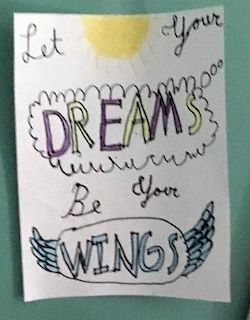 Let Your
DREAMS
Be Your
WINGS